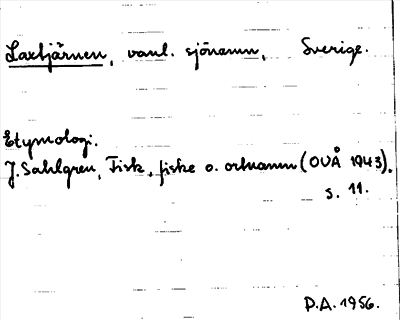 Laxtjärnen, vanl. sjönamn, Sverige.
Etymologi.
J. Sahlgren, Fisk, fiske o. ortnamn (OUÅ 1943),
s. 11.
P.A. 1956.